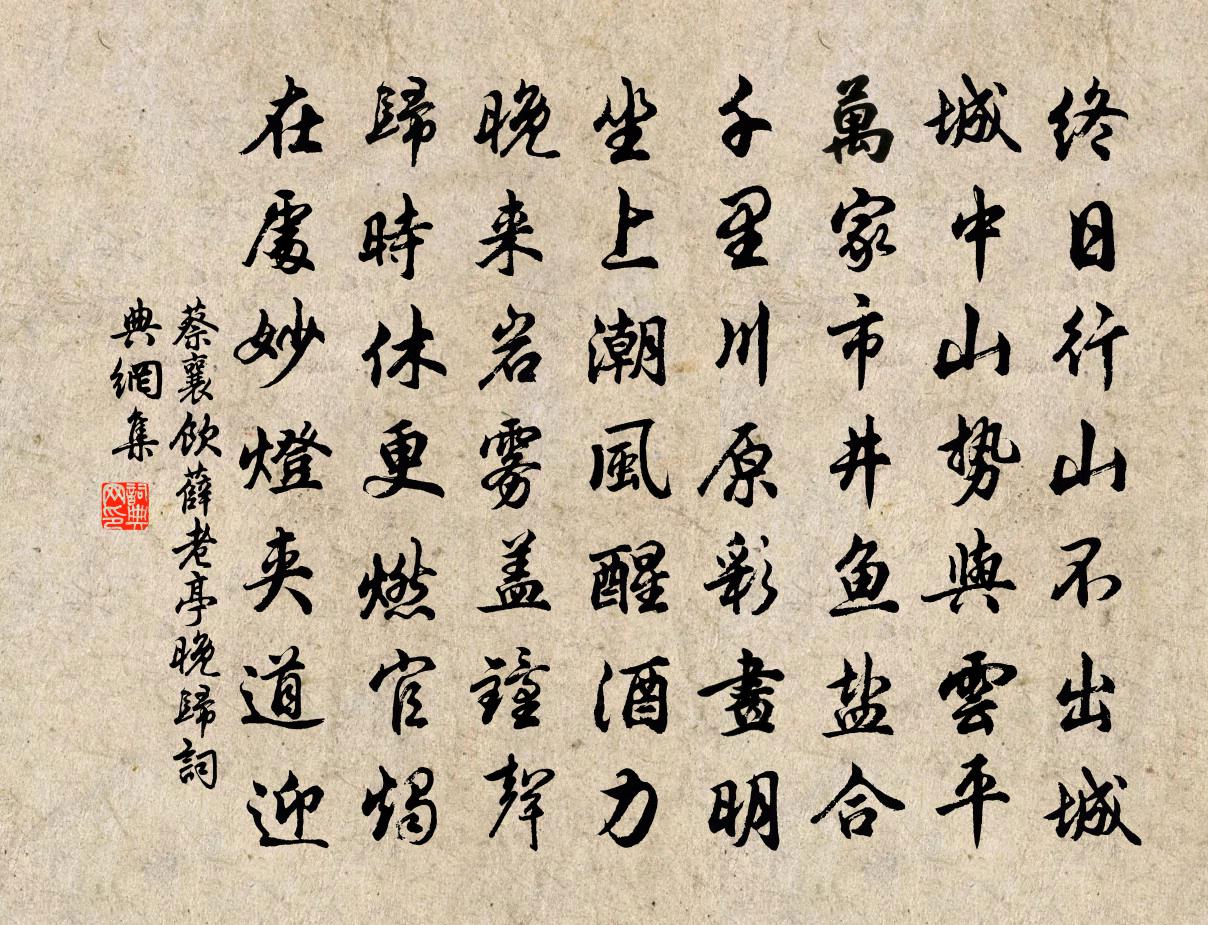 终日行山不出城
城中山势與雲平
萬家市井鱼盐合
千里川原彩畫明
坐上潮風醒酒力
晚来岩雾盖鐘聲
歸時休更燃官燭
在處妙燈夹道迎
蔡襄飲薛老亭晚歸詞
典網集
詞典
网印